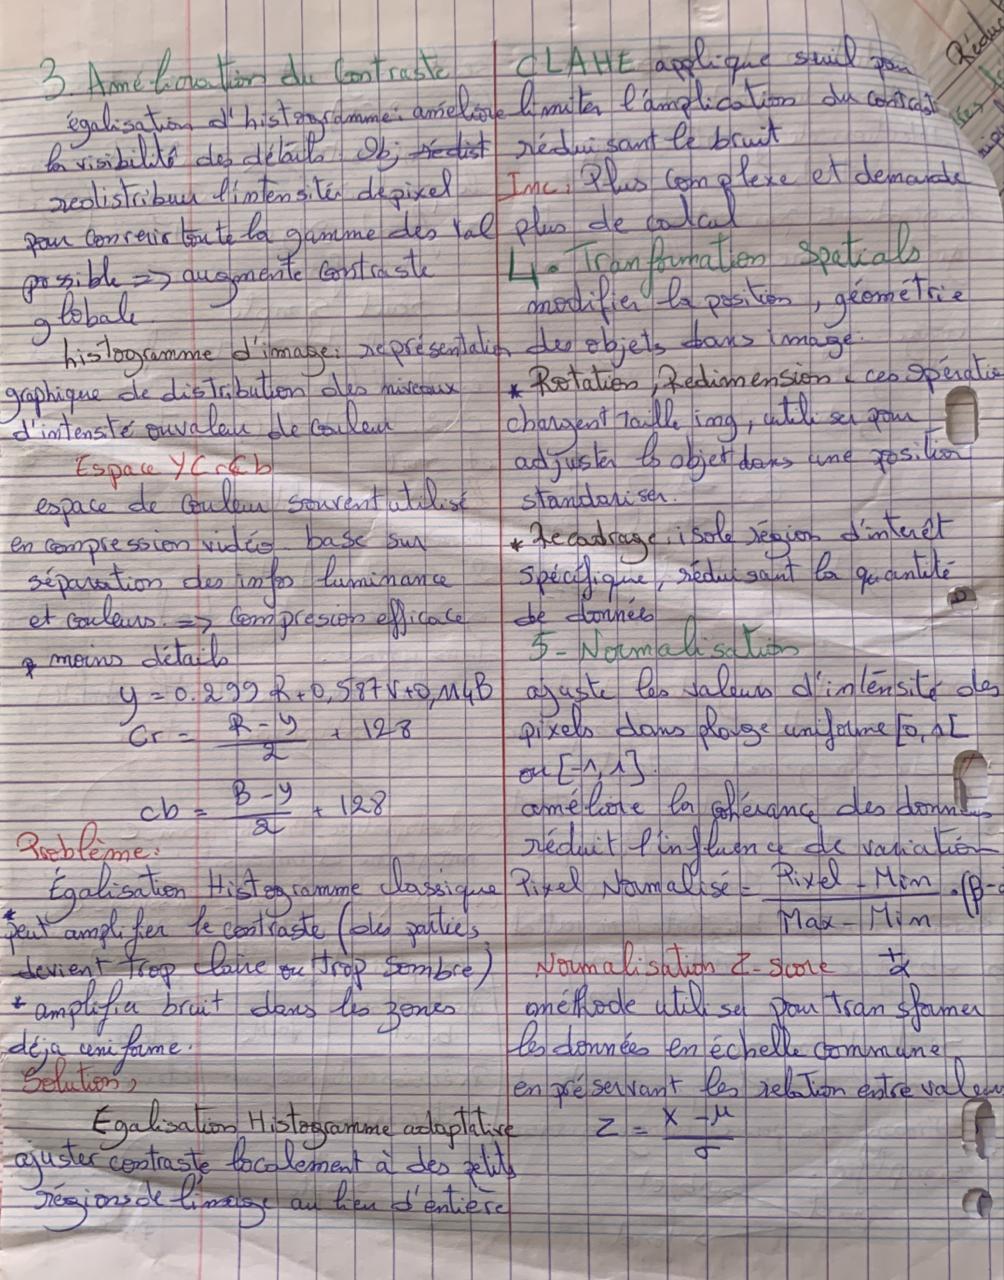 3. Amélioration du Contraste
égalisation d'histogramme: améliore
la visibilité des détails Obj rédist
redistribuer l'intensité de pixel
pour couvrir toute la gamme des val
possible => augmente contraste
globale
histogramme d'image: représentation
graphique de distribution des niveaux
d'intensté ou valeur de couleur
Espace YCrCb
espace de couleur souvent utilisé
en compression vidéo base sur
séparation des infos luminance
et couleurs => compression efficace
* moins détails
y = 0.299 R + 0,587 V + 0,114 B
Cr = R - y / 2 + 128
cb = B - y / 2 + 128
Problème:
Égalisation Histogramme classique
* peut amplifier le contraste (des parties
devient trop claire ou trop sombre)
* amplifier bruit dans les zones
déja uniforme.
Solution,
Egalisation Histogramme adaptative
ajuster contraste localement à des petits
régions de l'image au lieu d'entière
CLAHE applique seuil pour
limiter l'amplication du contrast
réduisant le bruit
Inc: Plus complexe et demande
plus de calcul
4. Tranformation Spatials
modifier la position, géométrie
des objets dans image.
* Rotation, Redimension: ces opératio
changent taille img, utiliser pour
adjuster ls objet dans une position
standariser.
* Recadrage: isole région d'interêt
spécifique, réduisant la quantité
de données
5- Normalisation
ajuste les valeurs d'intensité des
pixels dans plage uniforme [0, 1[
ou [-1, 1].
améliore la cohérance des données
réduit l'influence de variation
Pixel Normalisé = Pixel - Min / Max - Min . (β-
+α
Normalisation Z-score
améthode utiliser pour transformer
les données en échelle commune
en préservant les relation entre valeur
Z = X - μ / σ
Rédui